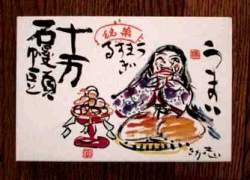 うまい
うますぎる
銘菓
十万
石饅頭